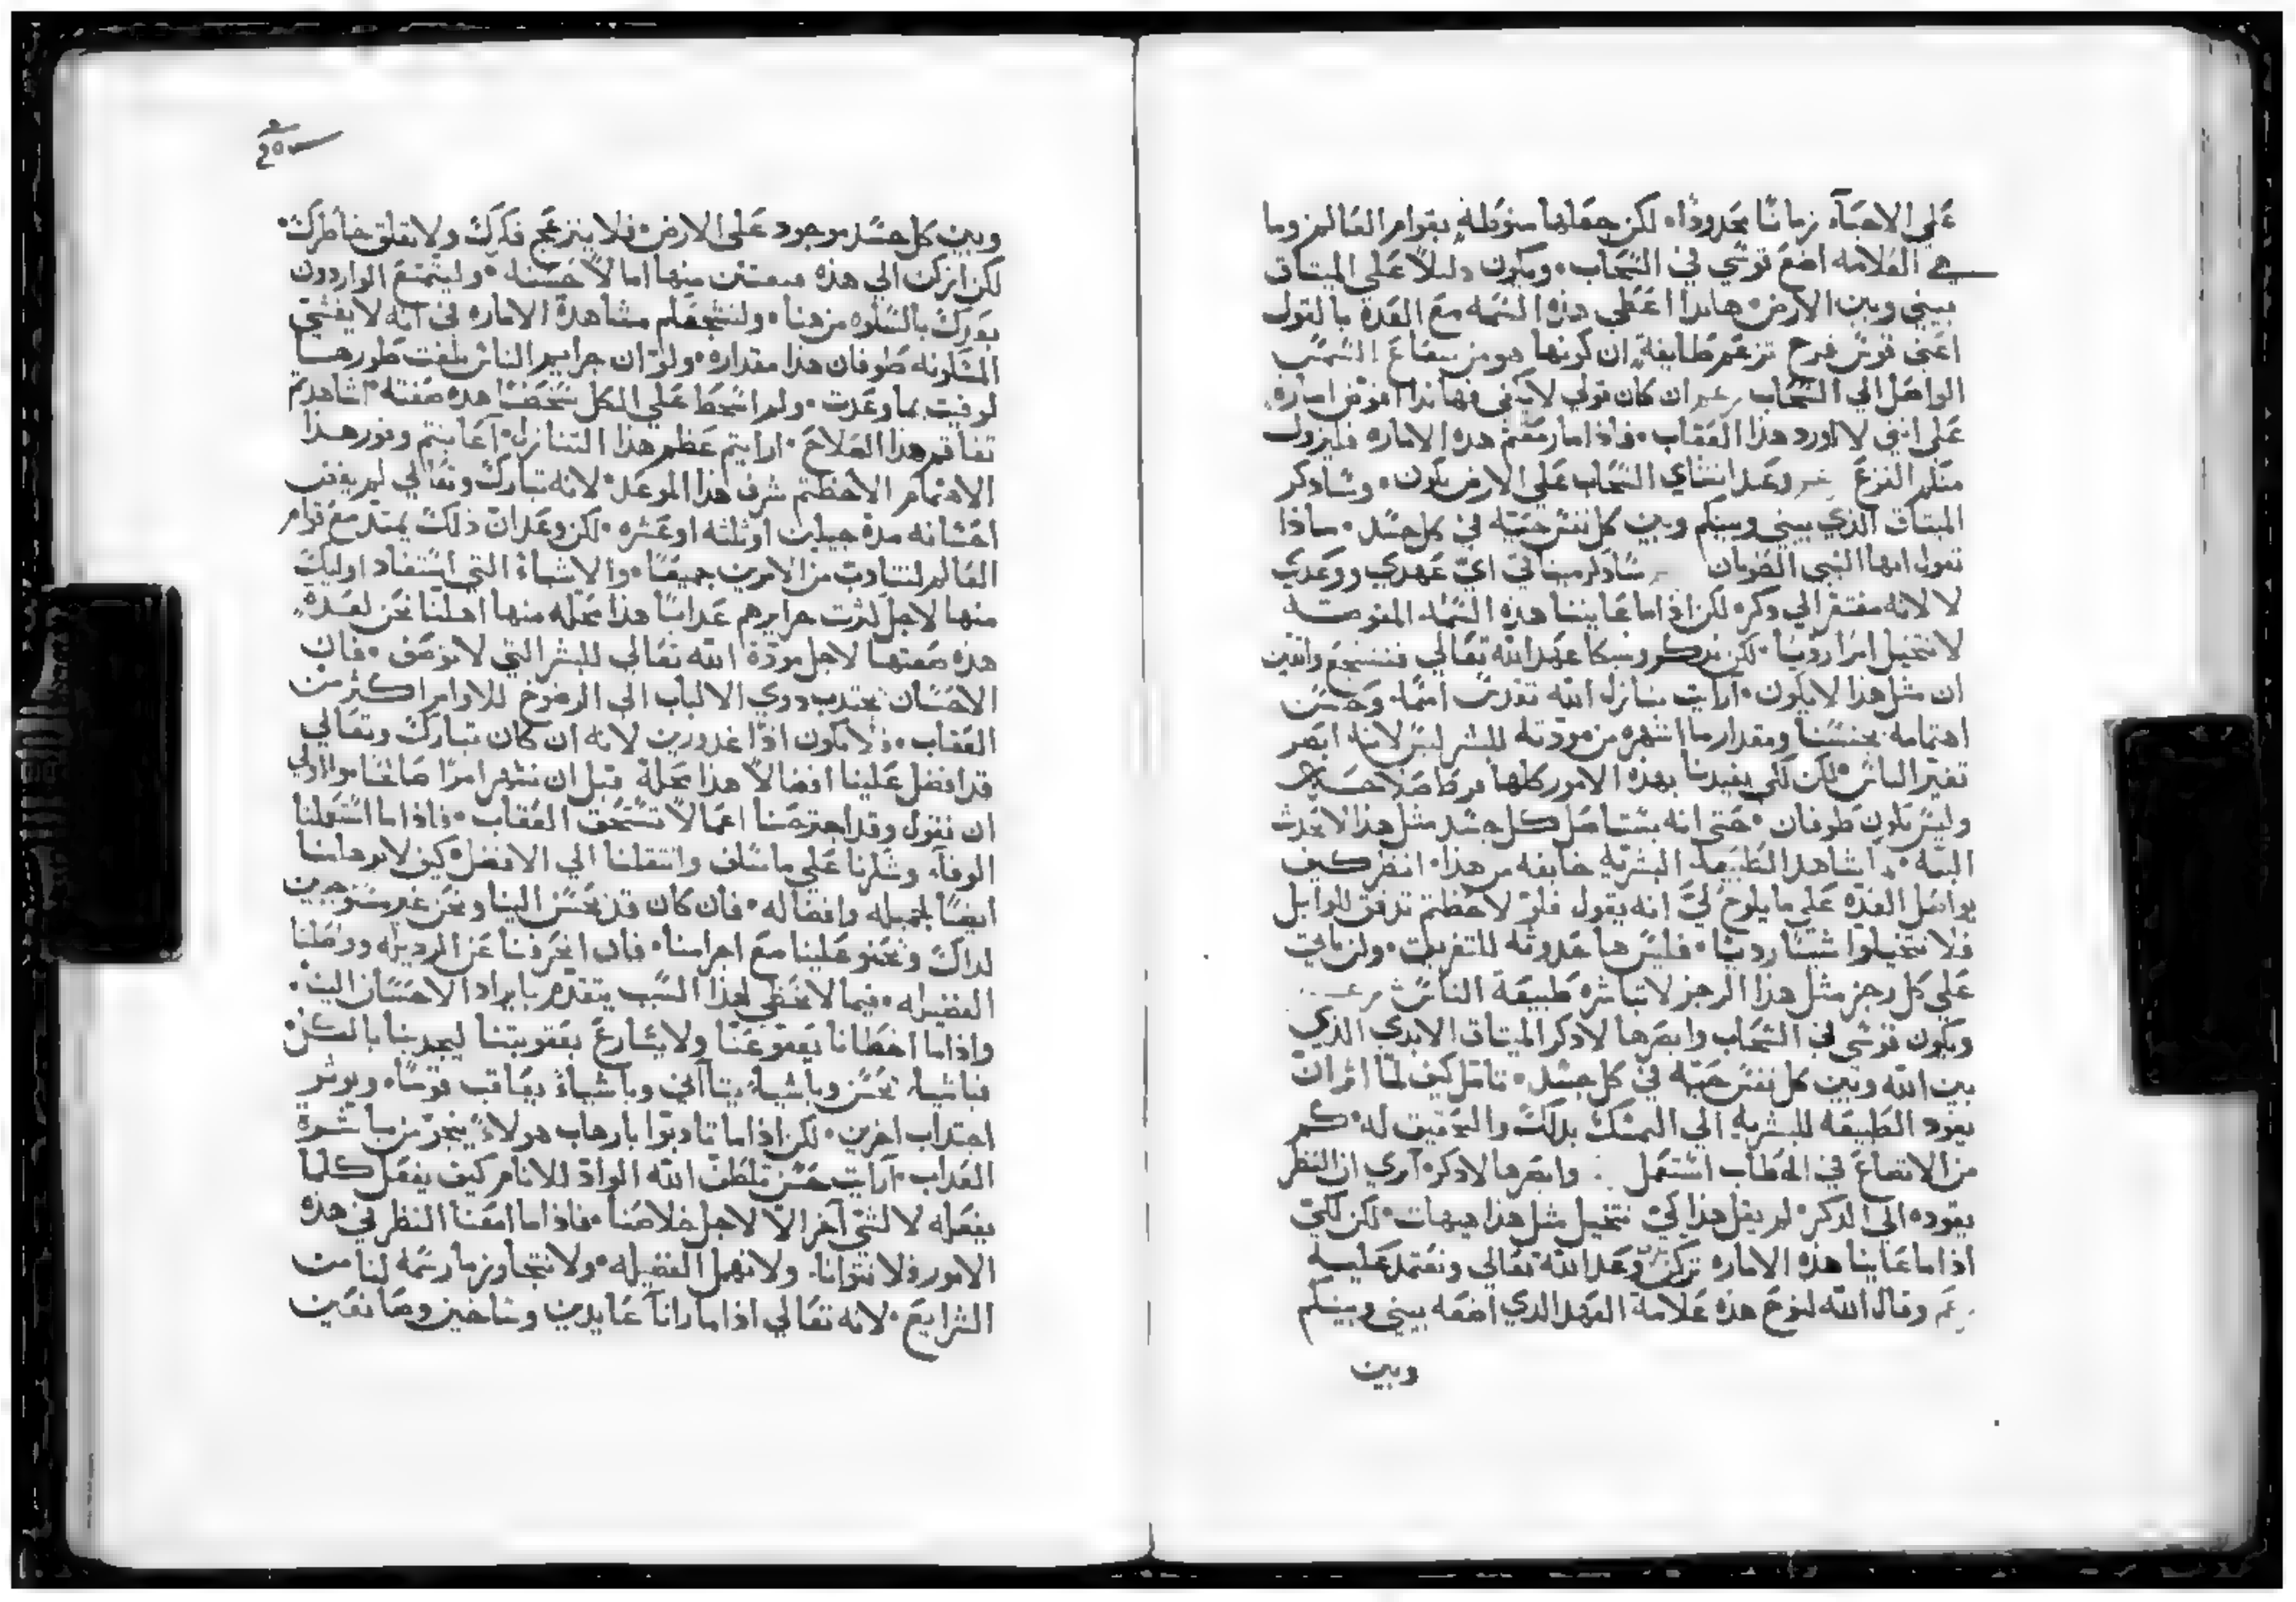 علي الاحيآء زمانًا محدودًا، لكن جعلها منوطةٍ بقوام العالم وما
هي العلامه اضع قوسي في السحاب، ويكون دليلاً علي الميتاق
بيني وبين الارض، هاندا اعطي هذه السمه مع العدة بالقول
اعني قوس قزح تزعم طايفة ان كونها هو من شعاع الشمس
الواصل الي السحاب ان كان قولي لا يكفي فهاندا افوض اماره
علي انني لا اورد هذا العقاب، فاذا ما رمقتم هده الاماره فليزول
منكم الفزع وعند انتشاي السحاب علي الارض يكون، وسادكر
الميتاق الذي بيني وبينكم وبين كل نفس حيّه في كل جسد، ماذا
تقول ايها النبي الطوبان سادكر ميتاقي ايّ عهدي ووعدي
لا لانه مفتقر الي دكره لكن اذاما عاينا هذه السمه المفوضه
لا نتخيل امرًا رديًا، لكن ندكر وشيكا عهد الله تعالي فنتشجع واتقين
ان مثل هذا لا يكون، ارايت تنازل الله تقدس اسمًا، وحسن
اهتمامه بجنسنا ومقدار ما اشهره من مودّته للبشر ليس لانه ابصر
تغير الناس، لكن لكي يفيدنا بهذه الامور كلها فرط صلاحه
وليس يكون طوفان، حتي انه يستاصل كل جسد مثل هذا لا يحدث
البته، شاهد الطبيعه البشريه خايفه من هذا، انظر كيف
يواصل العده علي ما يلوح ليّ انه يقول فلو لاحظتم تدفق الوابل
فلا تتخيلوا شيئًا رديًا، فليس ها حدوثه للتغريق، ولن ياتي
علي كل رجز مثل هذا الرجز لا تباشره طبيعة الناس
ويكون قوسي في السحاب وابصرها لادكر الميتاق الابدي الذي
بين الله وبين كل نفس حيّه في كل جسد، تامل كيف لمّا اثر ان
يقود الطبيعه للبشريه الي التمسك بدلك والتحقيق له، كم
من الاتضاع في الخطاب استعمل وابصرها لادكر، اري ان النظر
يقوده الي الدكر، لم يقل هذا لكيّ نتخيل مثل هذا هيهات، لكن لكيّ
اذا ما عاينا هذه الاماره نركن وعد الله تعالي ونعتمد عليه
وقال الله لنوح هذه علامة العهد الدي اضعه بيني وبينكم
وبين
وبين كل جسد موجود علي الارض، فلا ينزعج فكرك ولا يقلق خاطرك
لكن اركن الي هذه منها امالاً حسنه، وليتمتع الواردون
بعدك بالسلوه من هنا، ولتشجعكم مشاهدة الاماره في انه لا يغشي
المسكونه طوفان هذا مقداره، ولو ان جرايم الناس بلغت طورها
لوفيت بما وعدت، ولم اسخط علي الكل سخطًا هده صفته، اشاهدتم
تفاقم هذا الصلاح، ارايتم عظم هذا التنازل، اعاينتم وفور هذا
الاهتمام الاحظتم شرف هذا الموعد، لانه تبارك وتعالي لم يقف
احسانه مدة جيلين او ثلثه او عشره، لكن وعد ان ذلك يمتد مع قوام
العالم لنتادب من الامرين جميعًا، والاشياء التي استفاد اوليك
منها لاجل كثرت جرايرهم عدابًا هذا محله منها اهلنا نحن لعده
هذه صفتها لاجل مودّة الله تعالي للبشر التي لا توصف، فان
الاحسان يجتدب دوي الالباب الي الرضوخ للاوامر اكثر من
العقاب، فلا نكون اذًا غدورين لانه ان كان تبارك وتعالي
قد افضل علينا افضالاً هذا محلة قبل ان نشهر امرًا صالحًا
ان نقول وقد اجترحنا اعمالاً تستحق العقاب، فاذا ما استعملنا
الوفآء وشكرنا علي ما سلف وانتقلنا الي الافضل، كيف لا يرحمنا
ايضًا بجميله وافضاله، فان كان قد يحسن الينا ونحن غير مستوجبين
لداك ويحنو علينا مع اجرامنا، فان انحرفنا عن الرديله ووصلنا
الفضيله، فيما لا يحصي لهذا السبب يتقدّم بايراد الاحسان الينا،
واذا ما اخطانا يعفو عنا ولا يسارع بعقوبتنا ليجدبنا بالكل
فباشياء يحسن وباشياءٍ يتاانى وباشياءٍ يعاقب قومًا، ويوثر
اجتداب اخرين، لكن اذا ما تادبوا بارهاب هولاءِ ينجوّ من مباشرة
العداب، ارايت حسن تلطف الله الوادّ للانام كيف يفعل كلما
يفعله لا لشيّ اخر الاّ لاجل خلاصنا، فاذا ما امعنا النظر في هذه
الامور فلا نتوانا، ولا نهمل الفضيله، ولا نتجاوز ما رسمه لنا من
الشرايع، لانه تعالي اذا ما رانا عايدين وشاخصين وصانعين